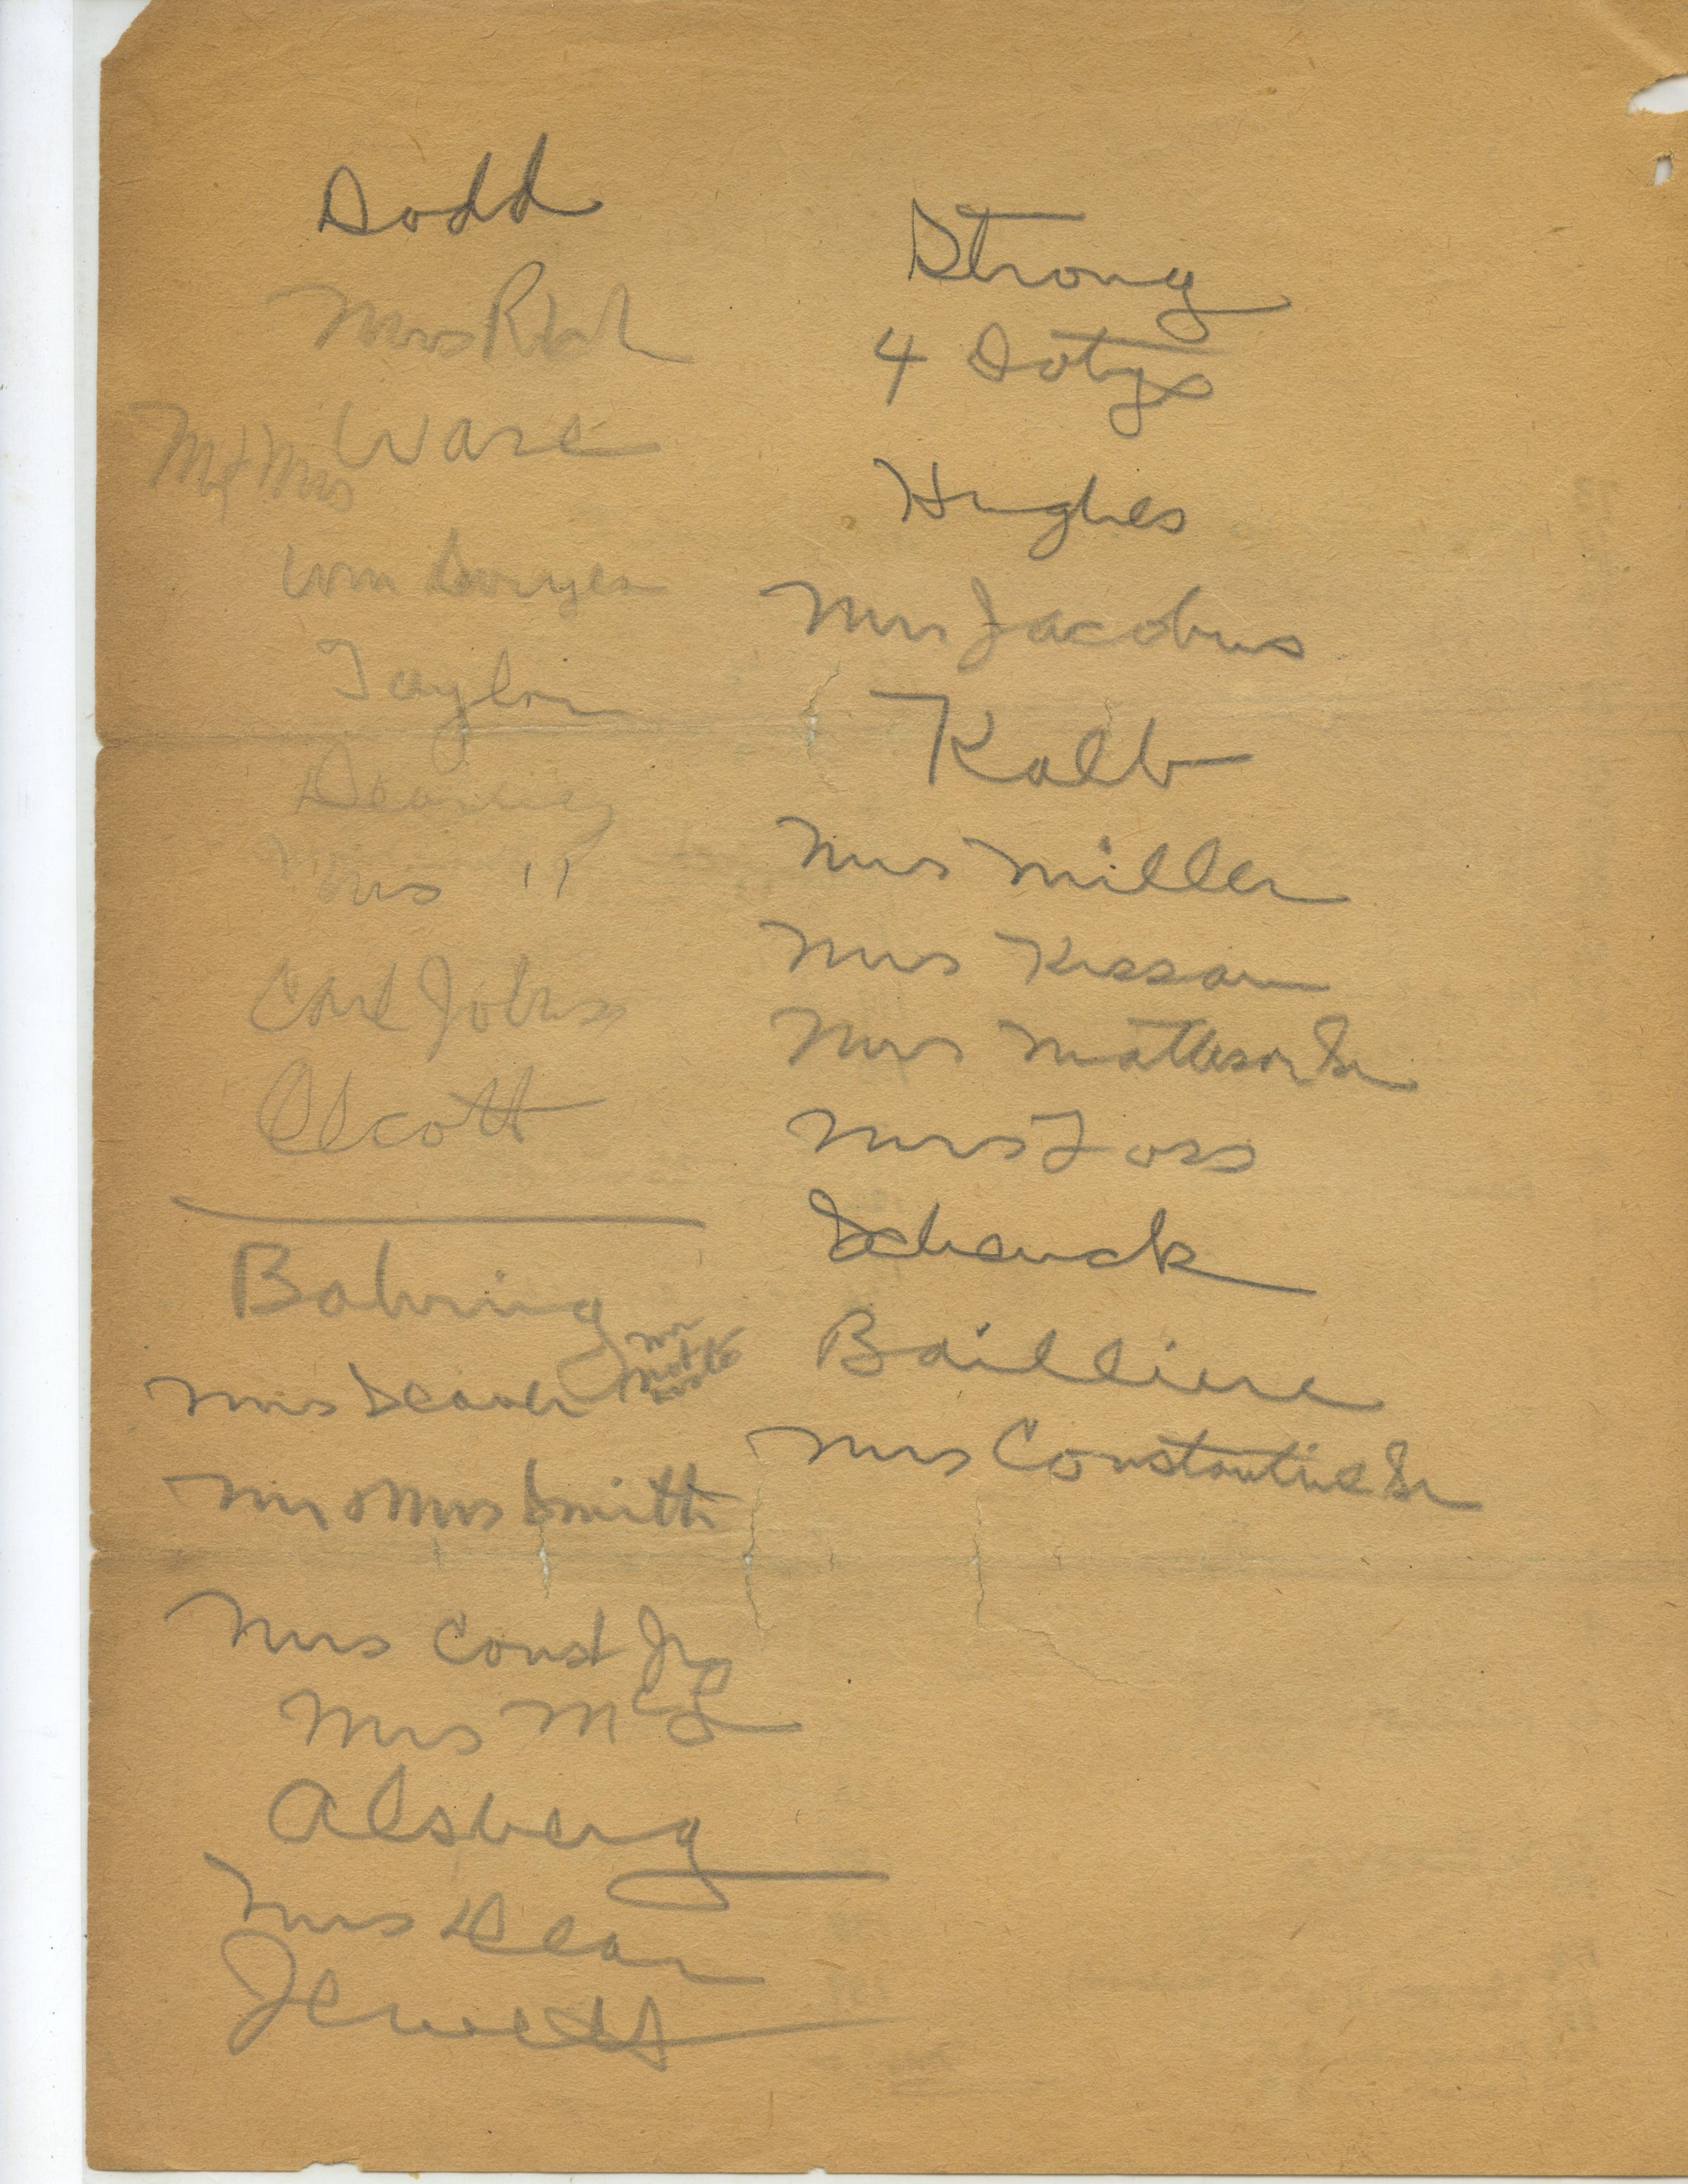 Dodd
Mrs
Ware
M & Mrs
Wm
Taylor
Mrs "
Carl Johns
Olcott
Bohring
Mrs Deaver
Mr & Mrs Smith
Mrs Const Jr
Mrs McL
Alsberg
Mrs Dean
Jewett
Strong
4 Dotys
Hughes
Mrs Jacobus
Kalb
Mrs Miller
Mrs Kissam
Mrs Matheson Sr
Mrs Foss
Schenck
Bailliere
Mrs Constantine Sr